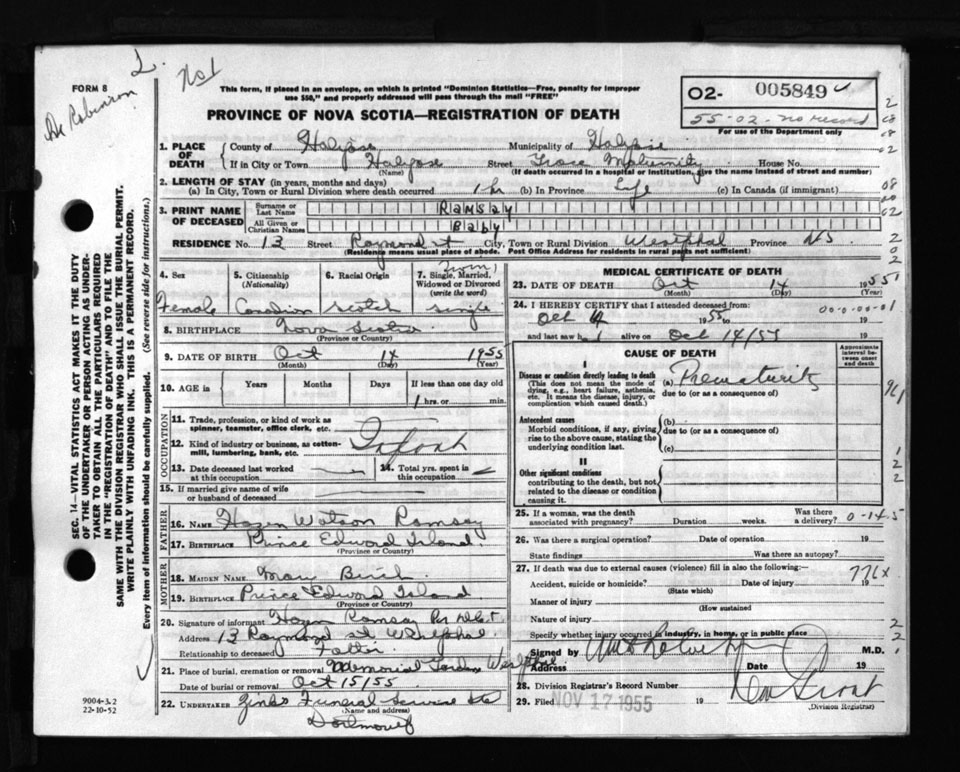 L.
No 1
FORM 8
Dr Robinson
This form, if placed in an envelope, on which is printed "Dominion Statistics—Free, penalty for improper
use $50," and properly addressed will pass through the mail "FREE"
PROVINCE OF NOVA SCOTIA—REGISTRATION OF DEATH
O2- 005849
55-02-no record
For use of the Department only
1. PLACE OF DEATH County of Halifax Municipality of Halifax
If in City or Town Halifax (Name) Street Grace Maternity House No.
(If death occurred in a hospital or institution, give the name instead of street and number)
2. LENGTH OF STAY (in years, months and days)
(a) In City, Town or Rural Division where death occurred 1 hr (b) In Province Life (c) In Canada (if immigrant)
3. PRINT NAME OF DECEASED
Surname or Last Name Ramsay
All Given or Christian Names Baby
RESIDENCE No. 13 Street Raymond st City, Town or Rural Division Westphal Province NS
(Residence means usual place of abode. Post Office Address for residents in rural parts not sufficient)
4. Sex
Female
5. Citizenship (Nationality)
Canadian
6. Racial Origin
Scotch
7. Single, Married, Widowed or Divorced (write the word)
Twin 1
Single
8. BIRTHPLACE Nova Scotia
(Province or Country)
9. DATE OF BIRTH Oct 14 1955
(Month) (Day) (Year)
10. AGE in Years Months Days If less than one day old
1 hrs. or min.
OCCUPATION
11. Trade, profession, or kind of work as spinner, teamster, office clerk, etc.
12. Kind of industry or business, as cotton-mill, lumbering, bank, etc. Infant
13. Date deceased last worked at this occupation
14. Total yrs. spent in this occupation
15. If married give name of wife or husband of deceased
FATHER
16. NAME Hazen Watson Ramsay
17. BIRTHPLACE Prince Edward Island.
(Province or Country)
MOTHER
18. MAIDEN NAME Mary Birch.
19. BIRTHPLACE Prince Edward Island
(Province or Country)
20. Signature of informant Hazen Ramsay Per
Address 13 Raymond st. Westphal.
Relationship to deceased Father
21. Place of burial, cremation or removal Memorial Gardens Westphal.
Date of burial or removal Oct 15/55
22. UNDERTAKER Zinks Funeral Service Ltd
(Name and address)
Dartmouth
MEDICAL CERTIFICATE OF DEATH
23. DATE OF DEATH Oct 14 1955
(Month) (Day) (Year)
24. I HEREBY CERTIFY that I attended deceased from
Oct 1955 to 19
and last saw h alive on Oct 14/55 19
CAUSE OF DEATH
Approximate interval between onset and death
I
Disease or condition directly leading to death
(This does not mean the mode of dying, e.g., heart failure, asthenia, etc. It means the disease, injury, or complication which caused death.)
(a) Prematurity
due to (or as a consequence of)
Antecedent causes
Morbid conditions, if any, giving rise to the above cause, stating the underlying condition last.
(b)
due to (or as a consequence of)
(c)
II
Other significant conditions
contributing to the death, but not related to the disease or condition causing it.
25. If a woman, was the death associated with pregnancy? Duration weeks. Was there a delivery? 0-14-5
26. Was there a surgical operation? Date of operation 19
State findings Was there an autopsy?
27. If death was due to external causes (violence) fill in also the following:—
776x
Accident, suicide or homicide? Date of injury 19
(State which)
Manner of injury
(How sustained
Nature of injury
Specify whether injury occurred in industry, in home, or in public place
Signed by M.D.
Address Date 19
28. Division Registrar's Record Number
29. Filed NOV 17 1955 19
(Division Registrar)
SEC. 14—VITAL STATISTICS ACT MAKES IT THE DUTY
OF THE UNDERTAKER OR PERSON ACTING AS UNDER-
TAKER TO OBTAIN ALL THE PARTICULARS REQUIRED
IN THE "REGISTRATION OF DEATH" AND TO FILE THE
SAME WITH THE DIVISION REGISTRAR WHO SHALL ISSUE THE BURIAL PERMIT.
WRITE PLAINLY WITH UNFADING INK. THIS IS A PERMANENT RECORD.
Every item of information should be carefully supplied. (See reverse side for instructions.)
9004-3.2
22-10-52